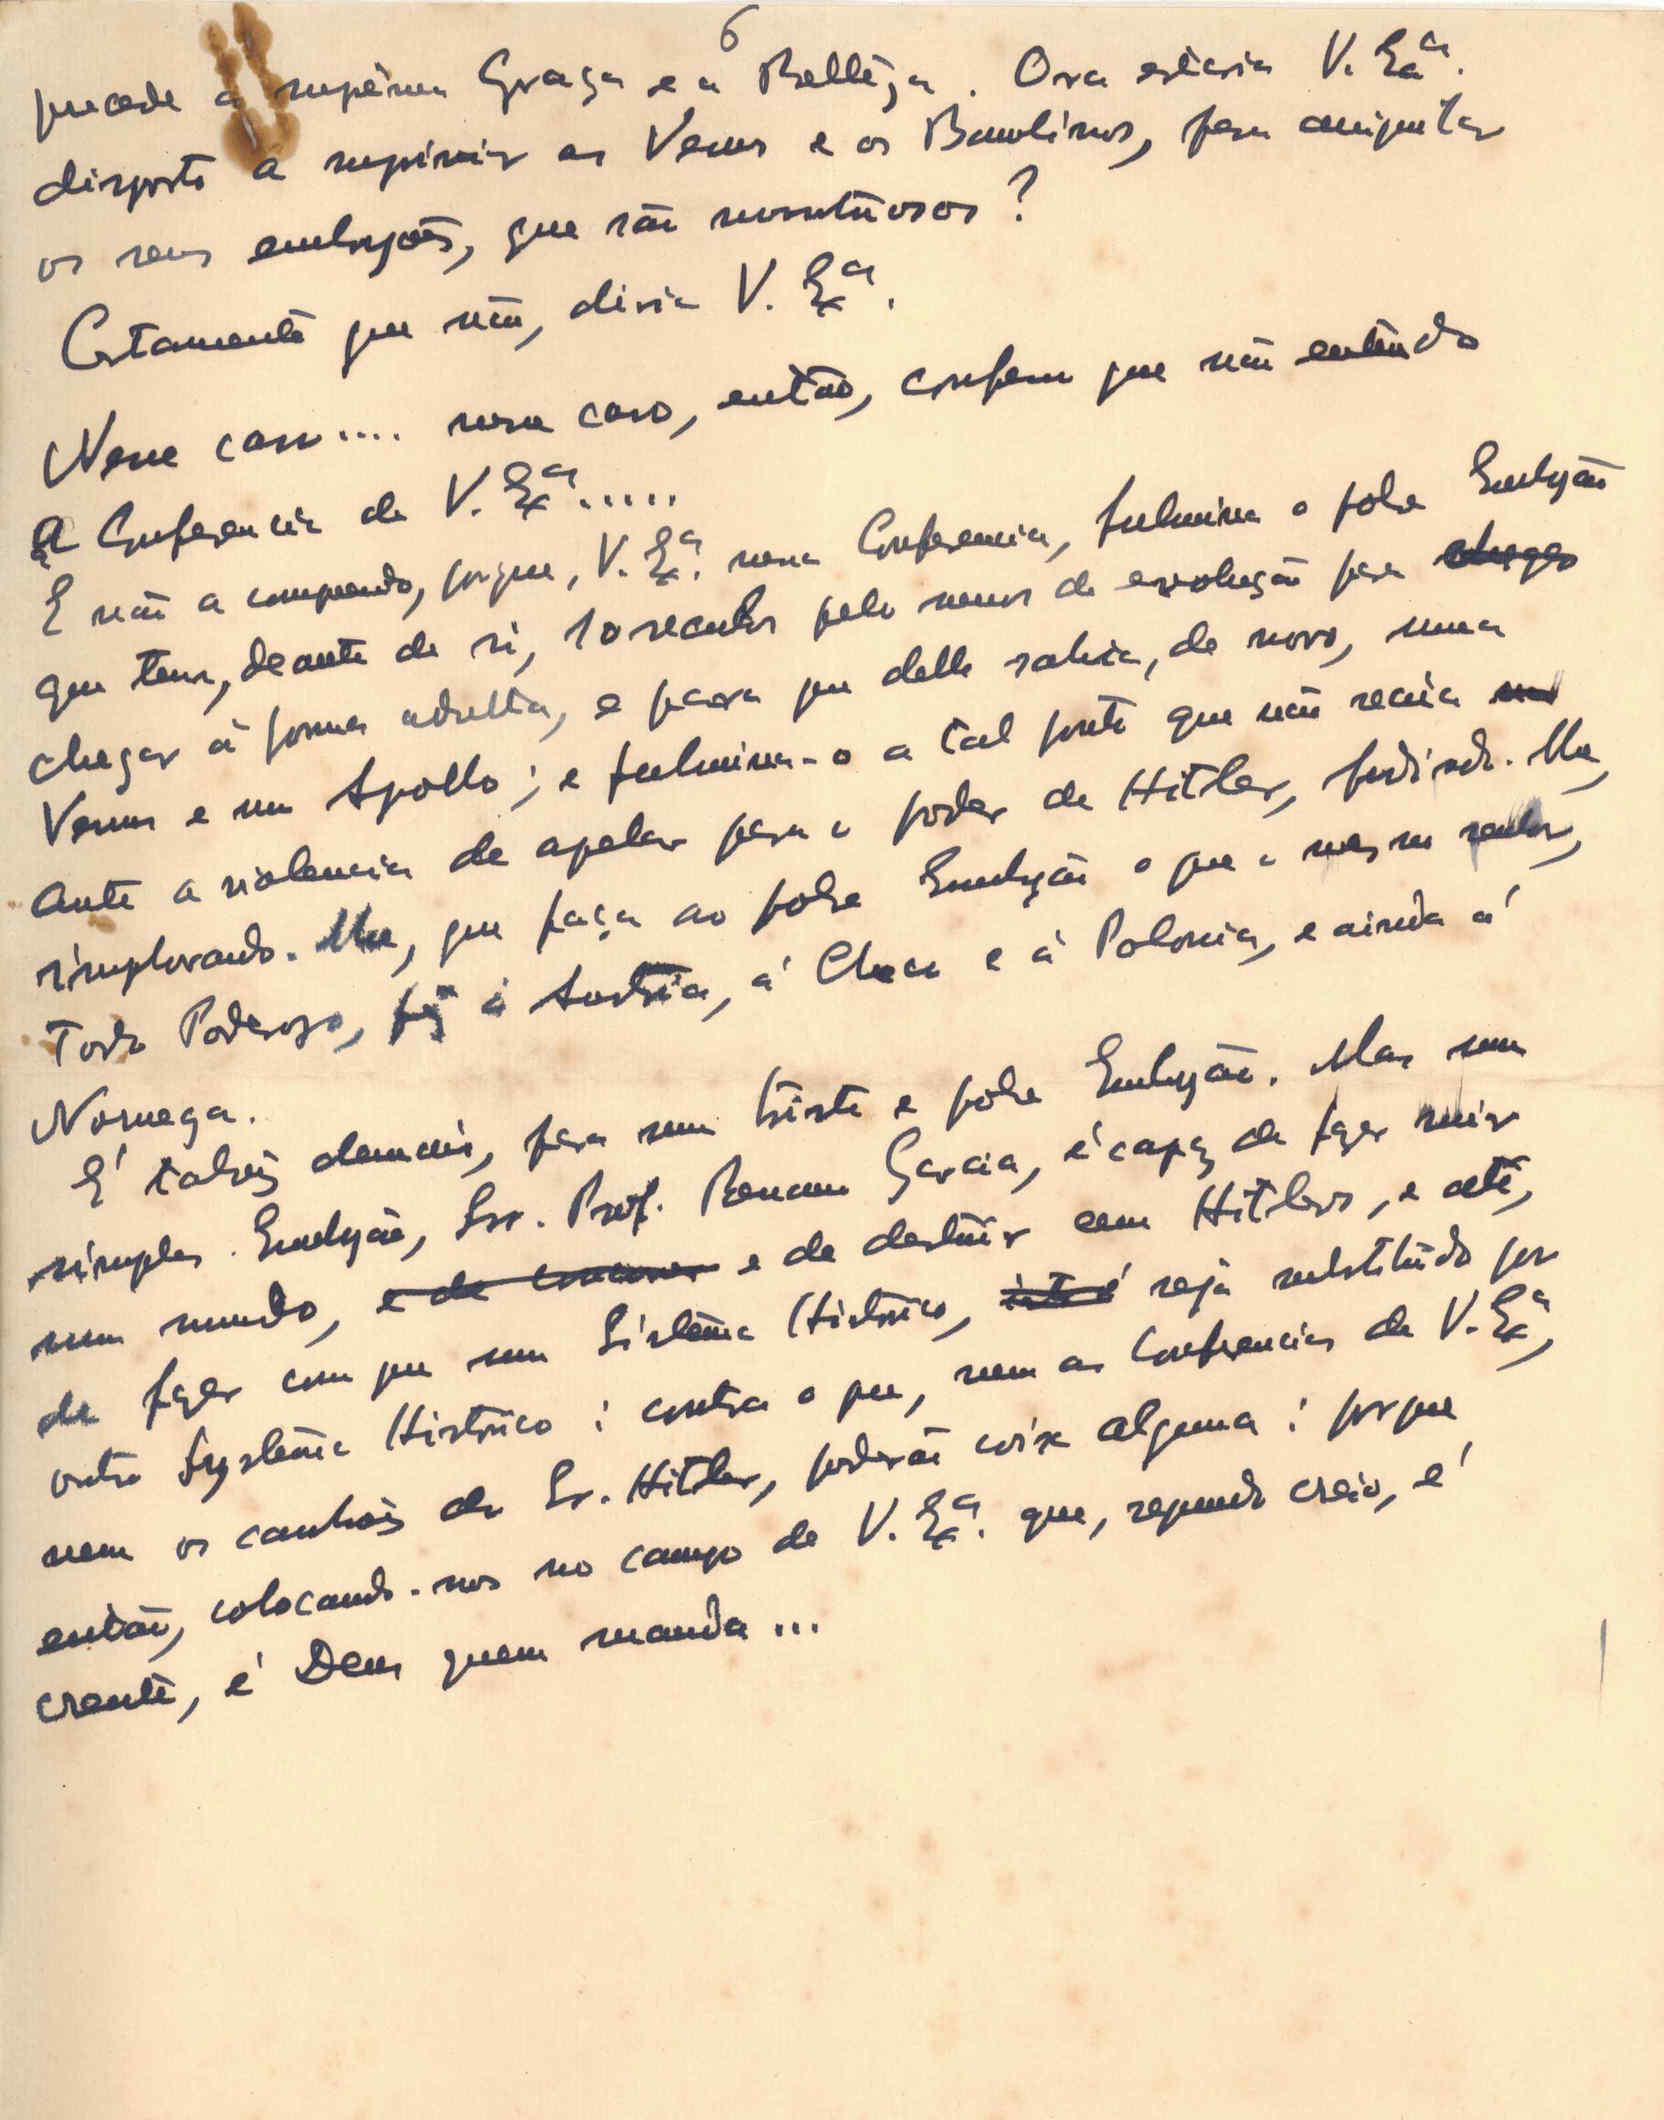 6
precede a suprêma Graça e a Bellêza. Ora estaria V. Exª.
disposto a suprimir as Venus e os Bambinos, para amputar
os seus embryões, que são monstruosos?
Certamente que não, diria V. Exª.
Nesse caso.... nesse caso, então, confesso que não entendo
a Conferencia de V. Exª.....
E não a comprendo, porque, V. Exª. nessa Conferencia, fulmina o pobre Embryão
que tem, deante de si, 10 seculos pelo menos de evolução para chegar
chegar á forma adulta, e para que delle sahia, de novo, uma
Venus e um Apollo; e fulmina-o a tal ponto que não receia
ante a violencia de apelar para o poder de Hitler, pedindo-lhe,
implorando-lhe, que faça ao pobre Embryão o que o mesmo senhor,
Todo Poderoso, fez á Austria, á Checa e á Polonia, e ainda á
Noruega.
É talvez demais, para um triste e pobre Embryão. Mas um
simples Embryão, Snr. Prof. Garcia, é capaz de fazer ruir
um mundo, e de e de destruir cem Hitlers, e até,
de fazer com que um Sistêma Histórico, isto é seja substituido por
outro Systêma Histórico: contra o que, nem as Conferencias de V. Exª,
nem os canhões do Sr. Hitler, poderão coisa alguma: porque
então, colocando-nos no campo de V. Exª. que, segundo creio, é
crente, é Deus quem manda...